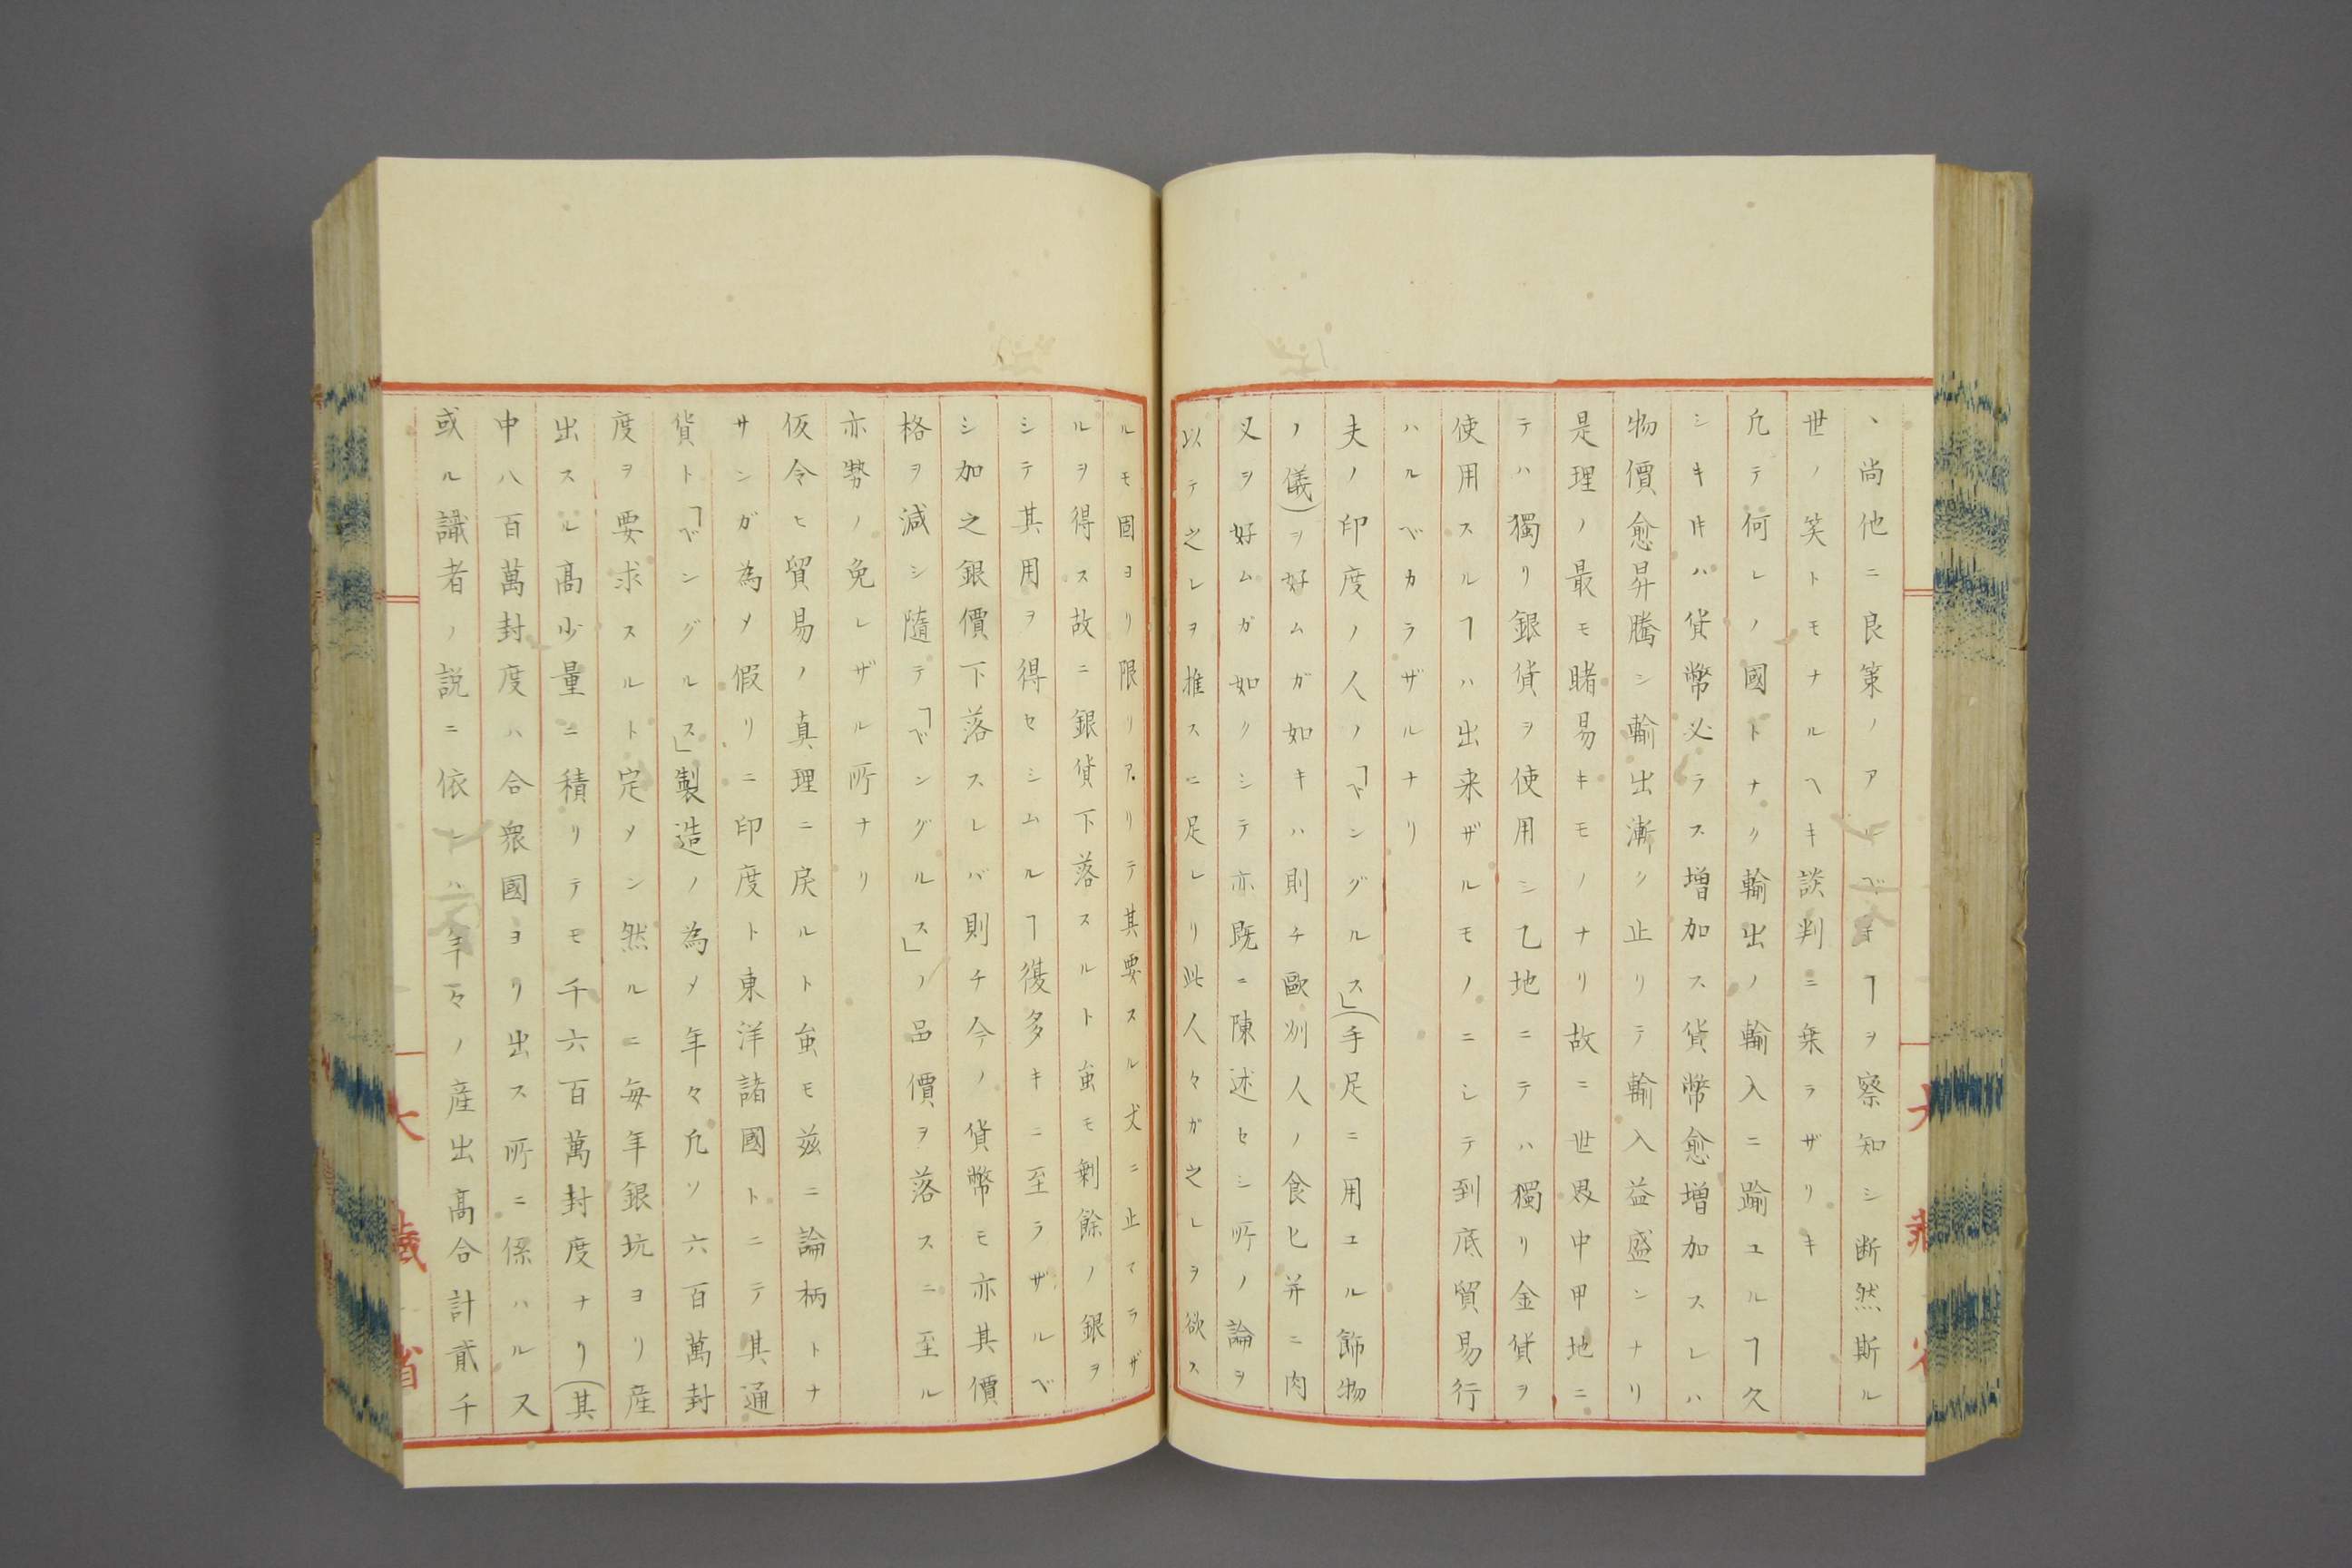 、尚他ニ良策ノアルベキヿヲ察知シ断然斯ル
世ノ笑トモナルヘキ談判ニ乗ラザリキ
凢テ何レノ國トナク輸出ノ輸入ニ踰ユルヿ久
シキ𪜈ハ貨幣必ラス増加ス貨幣愈増加スレハ
物價愈昇騰シ輸出漸ク止リテ輸入益盛ンナリ
是理ノ最モ睹易キモノナリ故ニ世界中甲地ニ
テハ獨リ銀貨ヲ使用シ乙地ニテハ獨リ金貨ヲ
使用スルヿハ出来ザルモノニシテ到底貿易行
ハルベカラザルナリ
夫ノ印度ノ人ノ「ベングルス」(手足ニ用ユル飾物
ノ儀)ヲ好ムガ如キハ則チ歐洲人ノ食匕并ニ肉
叉ヲ好ムガ如クシテ亦既ニ陳述セシ所ノ論ヲ
以テ之レヲ推スニ足レリ此人々ガ之レヲ欲ス
ルモ固ヨリ限リアリテ其要スル𠀋ニ止マラザ
ルヲ得ス故ニ銀貨下落スルト虽モ剰餘ノ銀ヲ
シテ其用ヲ得セシムルヿ復多キニ至ラザルベ
シ加之銀價下落スレバ則チ今ノ貨幣モ亦其價
格ヲ減シ随テ「ベングルス」ノ品價ヲ落スニ至ル
亦勢ノ免レザル所ナリ
仮令ヒ貿易ノ真理ニ戻ルト虽モ茲ニ論柄トナ
サンガ為メ假リニ印度ト東洋諸國トニテ其通
貨ト「ベングルス」製造ノ為メ年々凢ソ六百萬封
度ヲ要求スルト定メン然ルニ毎年銀坑ヨリ産
出スル高少量ニ積リテモ千六百萬封度ナリ(其
中八百萬封度ハ合衆國ヨリ出ス所ニ係ハル又
或ル識者ノ説ニ依レハ年々ノ産出高合計貳千
大藏省